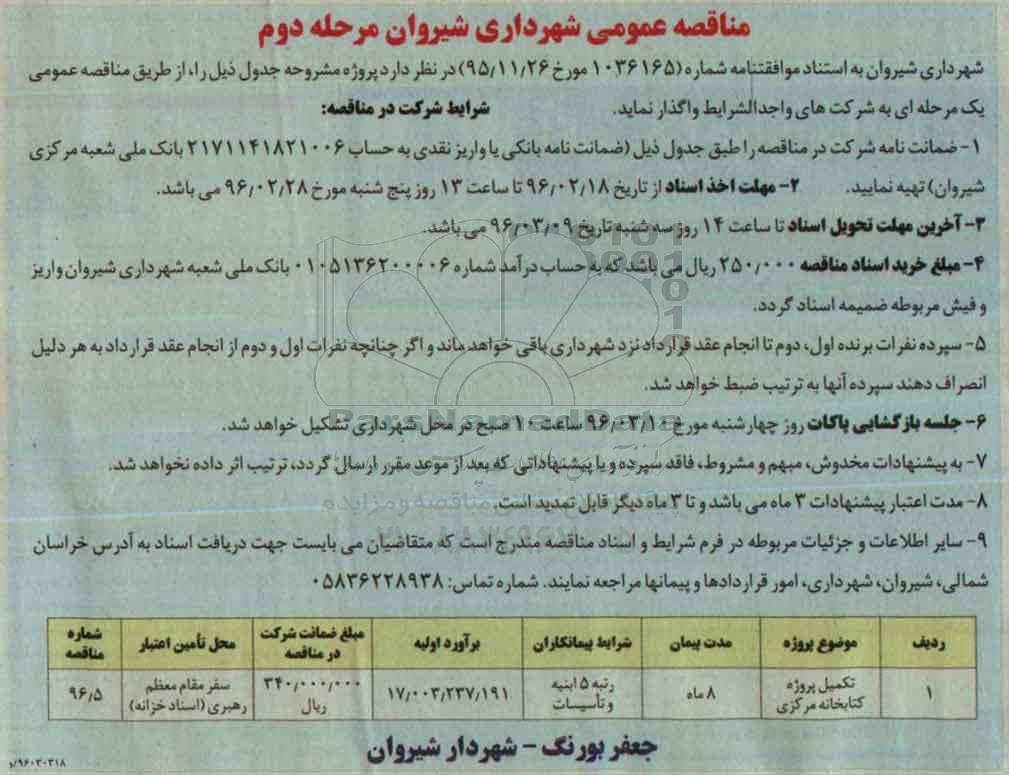 مناقصه عمومی شهرداری شیروان مرحله دوم
شهرداری شیروان به استناد موافقتنامه شماره (۱۰۳۶۱۶۵ مورخ ۹۵/۱۱/۲۶) در نظر دارد پروژه مشروحه جدول ذیل را، از طریق مناقصه عمومی
یک مرحله ای به شرکت های واجدالشرایط واگذار نماید. شرایط شرکت در مناقصه:
۱- ضمانت نامه شرکت در مناقصه را طبق جدول ذیل (ضمانت نامه بانکی یا واریز نقدی به حساب ۲۱۷۱۱۴۱۸۲۱۰۰۶ بانک ملی شعبه مرکزی
شیروان) تهیه نمایید. ۲- مهلت اخذ اسناد از تاریخ ۹۶/۰۲/۱۸ تا ساعت ۱۳ روز پنج شنبه مورخ ۹۶/۰۲/۲۸ می باشد.
۳- آخرین مهلت تحویل اسناد تا ساعت ۱۴ روز سه شنبه تاریخ ۹۶/۰۳/۰۹ می باشد.
۴- مبلغ خرید اسناد مناقصه ۲۵۰/۰۰۰ ریال می باشد که به حساب درآمد شماره ۰۱۰۵۱۳۶۲۰۰۰۰۶ بانک ملی شعبه شهرداری شیروان واریز
و فیش مربوطه ضمیمه اسناد گردد.
۵- سپرده نفرات برنده اول، دوم تا انجام عقد قرارداد نزد شهرداری باقی خواهد ماند و اگر چنانچه نفرات اول و دوم از انجام عقد قرارداد به هر دلیل
انصراف دهند سپرده آنها به ترتیب ضبط خواهد شد.
۶- جلسه بازگشایی پاکات روز چهارشنبه مورخ ۹۶/۰۳/۱۰ ساعت ۱۰ صبح در محل شهرداری تشکیل خواهد شد.
ParsNamadData
۷- به پیشنهادات مخدوش، مبهم و مشروط، فاقد سپرده و یا پیشنهاداتی که بعد از موعد مقرر ارسال گردد، ترتیب اثر داده نخواهد شد.
۸- مدت اعتبار پیشنهادات ۳ ماه می باشد و تا ۳ ماه دیگر قابل تمدید است.
۹- سایر اطلاعات و جزئیات مربوطه در فرم شرایط و اسناد مناقصه مندرج است که متقاضیان می بایست جهت دریافت اسناد به آدرس خراسان
شمالی، شیروان، شهرداری، امور قراردادها و پیمانها مراجعه نمایند. شماره تماس: ۰۵۸۳۶۲۲۸۹۳۸
ردیف موضوع پروژه مدت پیمان شرایط پیمانکاران برآورد اولیه مبلغ ضمانت شرکت در مناقصه محل تأمین اعتبار شماره مناقصه
۱ تکمیل پروژه کتابخانه مرکزی ۸ ماه رتبه ۵ ابنیه و تأسیسات ۱۷/۰۰۳/۲۳۷/۱۹۱ ۳۴۰/۰۰۰/۰۰۰ ریال سفر مقام معظم رهبری (اسناد خزانه) ۹۶/۵
جعفر بورنگ - شهردار شیروان
۹۶۰۲۰۲۱۸/و